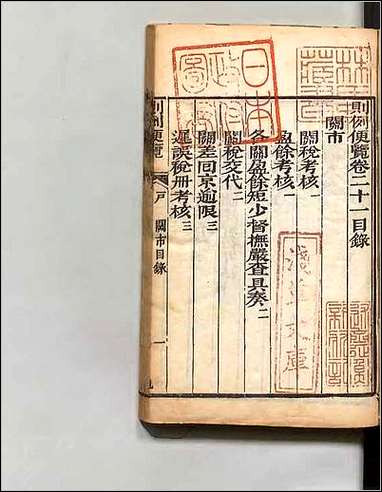 則例便覽卷二十一目錄
關市
關稅考核一
盈餘考核一
各關盈餘短少督撫嚴查具奏二
關稅交代二
關差回京逾限三
遲誤稅册考核三
則例便覽
戶
關市目錄
一
日本
政府
圖書
淺草文庫